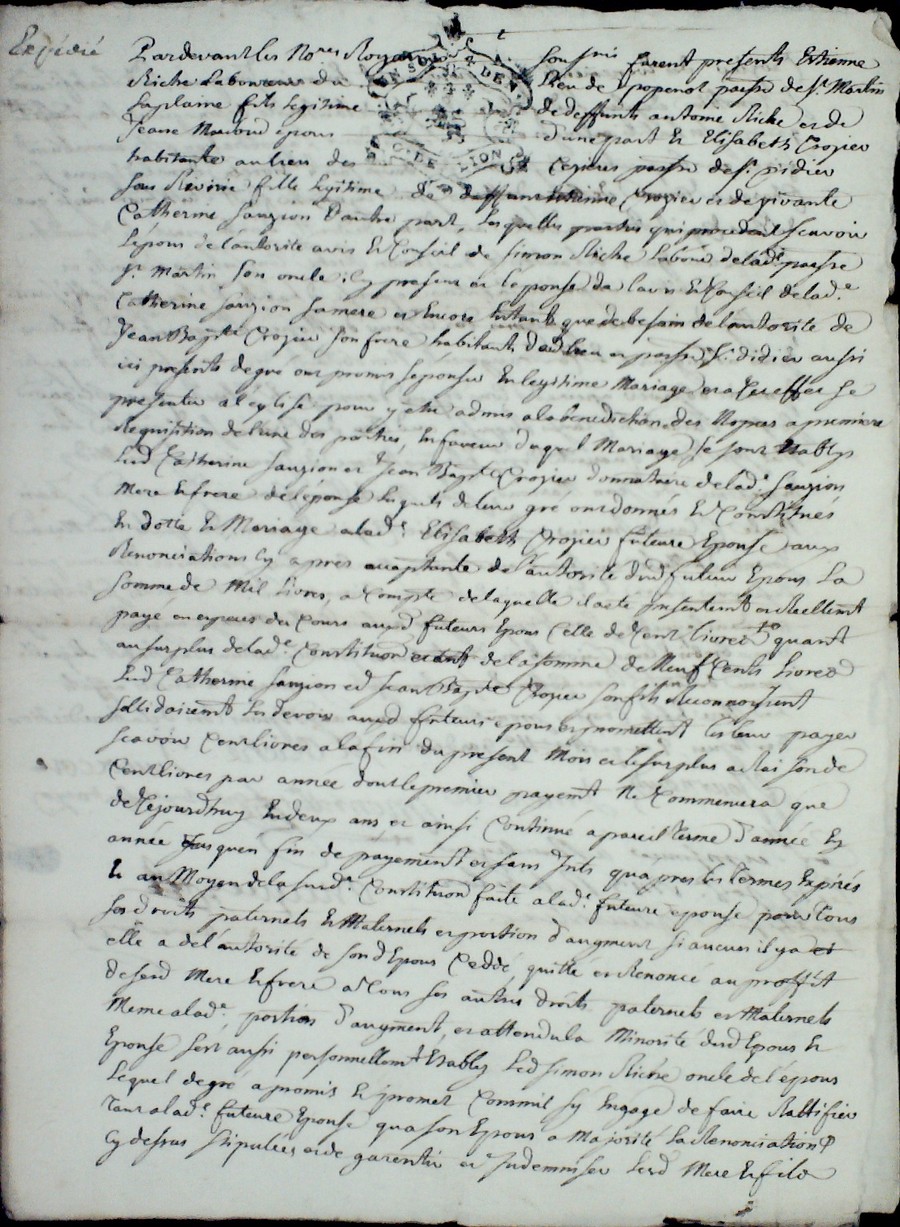 Expédié
Pardevant les No.res Royaux soussignés furent presents Estienne
Riche Laboureur du lieu de popenot parsse de st. Martin
Laplaine fils legitime de deffunts antoine Riche et de
Jeane epoux d'une part Et Elisabeth Crozier
GEN DE LION
habitante au lieu des parsse de st. didier
sous Reverie fille legitime de deffunt Crozier et de vivante
Catherine Sauzion D'autre part, Lesquelles parties qui procedent scavoir
L'epoux de l'autorité avis Et Conseil de simon Riche Labour. de lad.e parsse
st. Martin son oncle icy present et l'epouse de l'avis Et Conseil de lad.e
Catherine Sauzion sa mere et Encore Entant que de besoin de l'autorité de
Jean Bapt.e Crozier son frere habitants dud. lieu et parsse st. didier aussi
ici presents de gré ont promis se prendre En legitime Mariage et a cet effet se
presenter a l'eglise pour y etre admis a la benediction des Nopces a premiere
Requisition de l'une des parties, En faveur duquel Mariage se sont Etablys
Lad. Catherine Sauzion et Jean Bapte. Crozier donnataire de lad.e Sauzion
Mere Et frere de l'épouse lesquels de leur gré ont donnés Et Constitués
En dotte Et Mariage a lad.e Elisabeth Crozier future Epouse aux
Renonciations cy apres acceptante de l'autorité dud. futur Epoux La
somme de Mil Livres, a Compte de laquelle il a eté presentemt. et Reellemt.
payé en especes du Cours auxd. futurs Epoux Celle de Cent livres quant
au surplus de lad.e Constitution de la somme de Neuf Cents livres
Lad. Catherine Sauzion et Jean Bapte. Crozier son fils Reconnoissent
sollidairemt. les devoir auxd. futurs epoux et promettent les leur payer
scavoir Cent livres a la fin du present Mois et le surplus a Raison de
Cent livres par année dont le premier payemt. ne Commencera que
de Cejourdhuy En deux ans et ainsi Continué a pareil terme d'année En
année jusqu'en fin de payement et sans Ints. qu'apres les termes Expirés
Et au Moyen de la susd.e Constitution faite a lad.e future epouse pour tous
ses droits paternels Et Maternels et portion d'augment si aucun il y a et
elle a de l'autorité de sond. Epoux Ceddé, quitté et Renoncé au proffit
de sesd. Mere Et frere a tous ses autres droits paternels et Maternels
Meme a lad.e portion d'augment, et attendu la Minorité dud. Epoux Et
Epouse s'est aussi personnellemt. Etably Led. simon Riche oncle de l'epoux
Lequel de gré a promis Et promet Comme il s'y Engage de faire Rattifier
tant a lad.e future Epouse qu'a son Epoux a Majorité La Renonciation
Cy dessus stipulée et de garentir et Indemniser Lesd. Mere Et fils